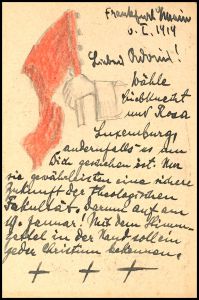 Frankfurt Main
Lieber
Wähle
Liebknecht
und Rosa
Luxemburg,
andernfalls es um
Dich geschehen ist. Nur
sie gewährleisten eine sichere
Zukunft der theologischen
Fakultät, darum auf am
19. Januar! Mit dem
in der Hand sollen
jeder Christum bekennen.
+ + +